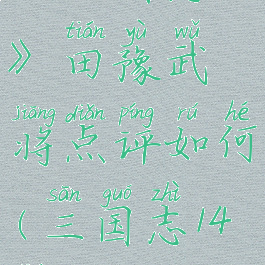 tián yù wǔ
》田豫武
jiāng diǎn píng rú hé
将点评如何
sān guó zhì
(三国志14